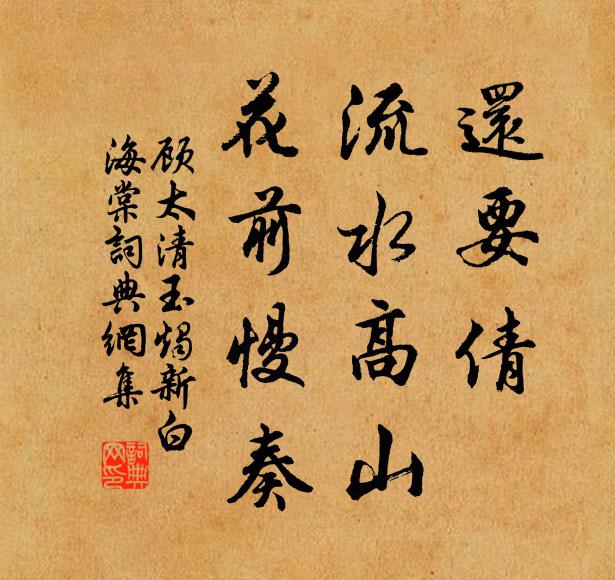 還要倩
流水高山
花前慢奏
顾太清玉燭新白
海棠詞典網集
詞典
网印